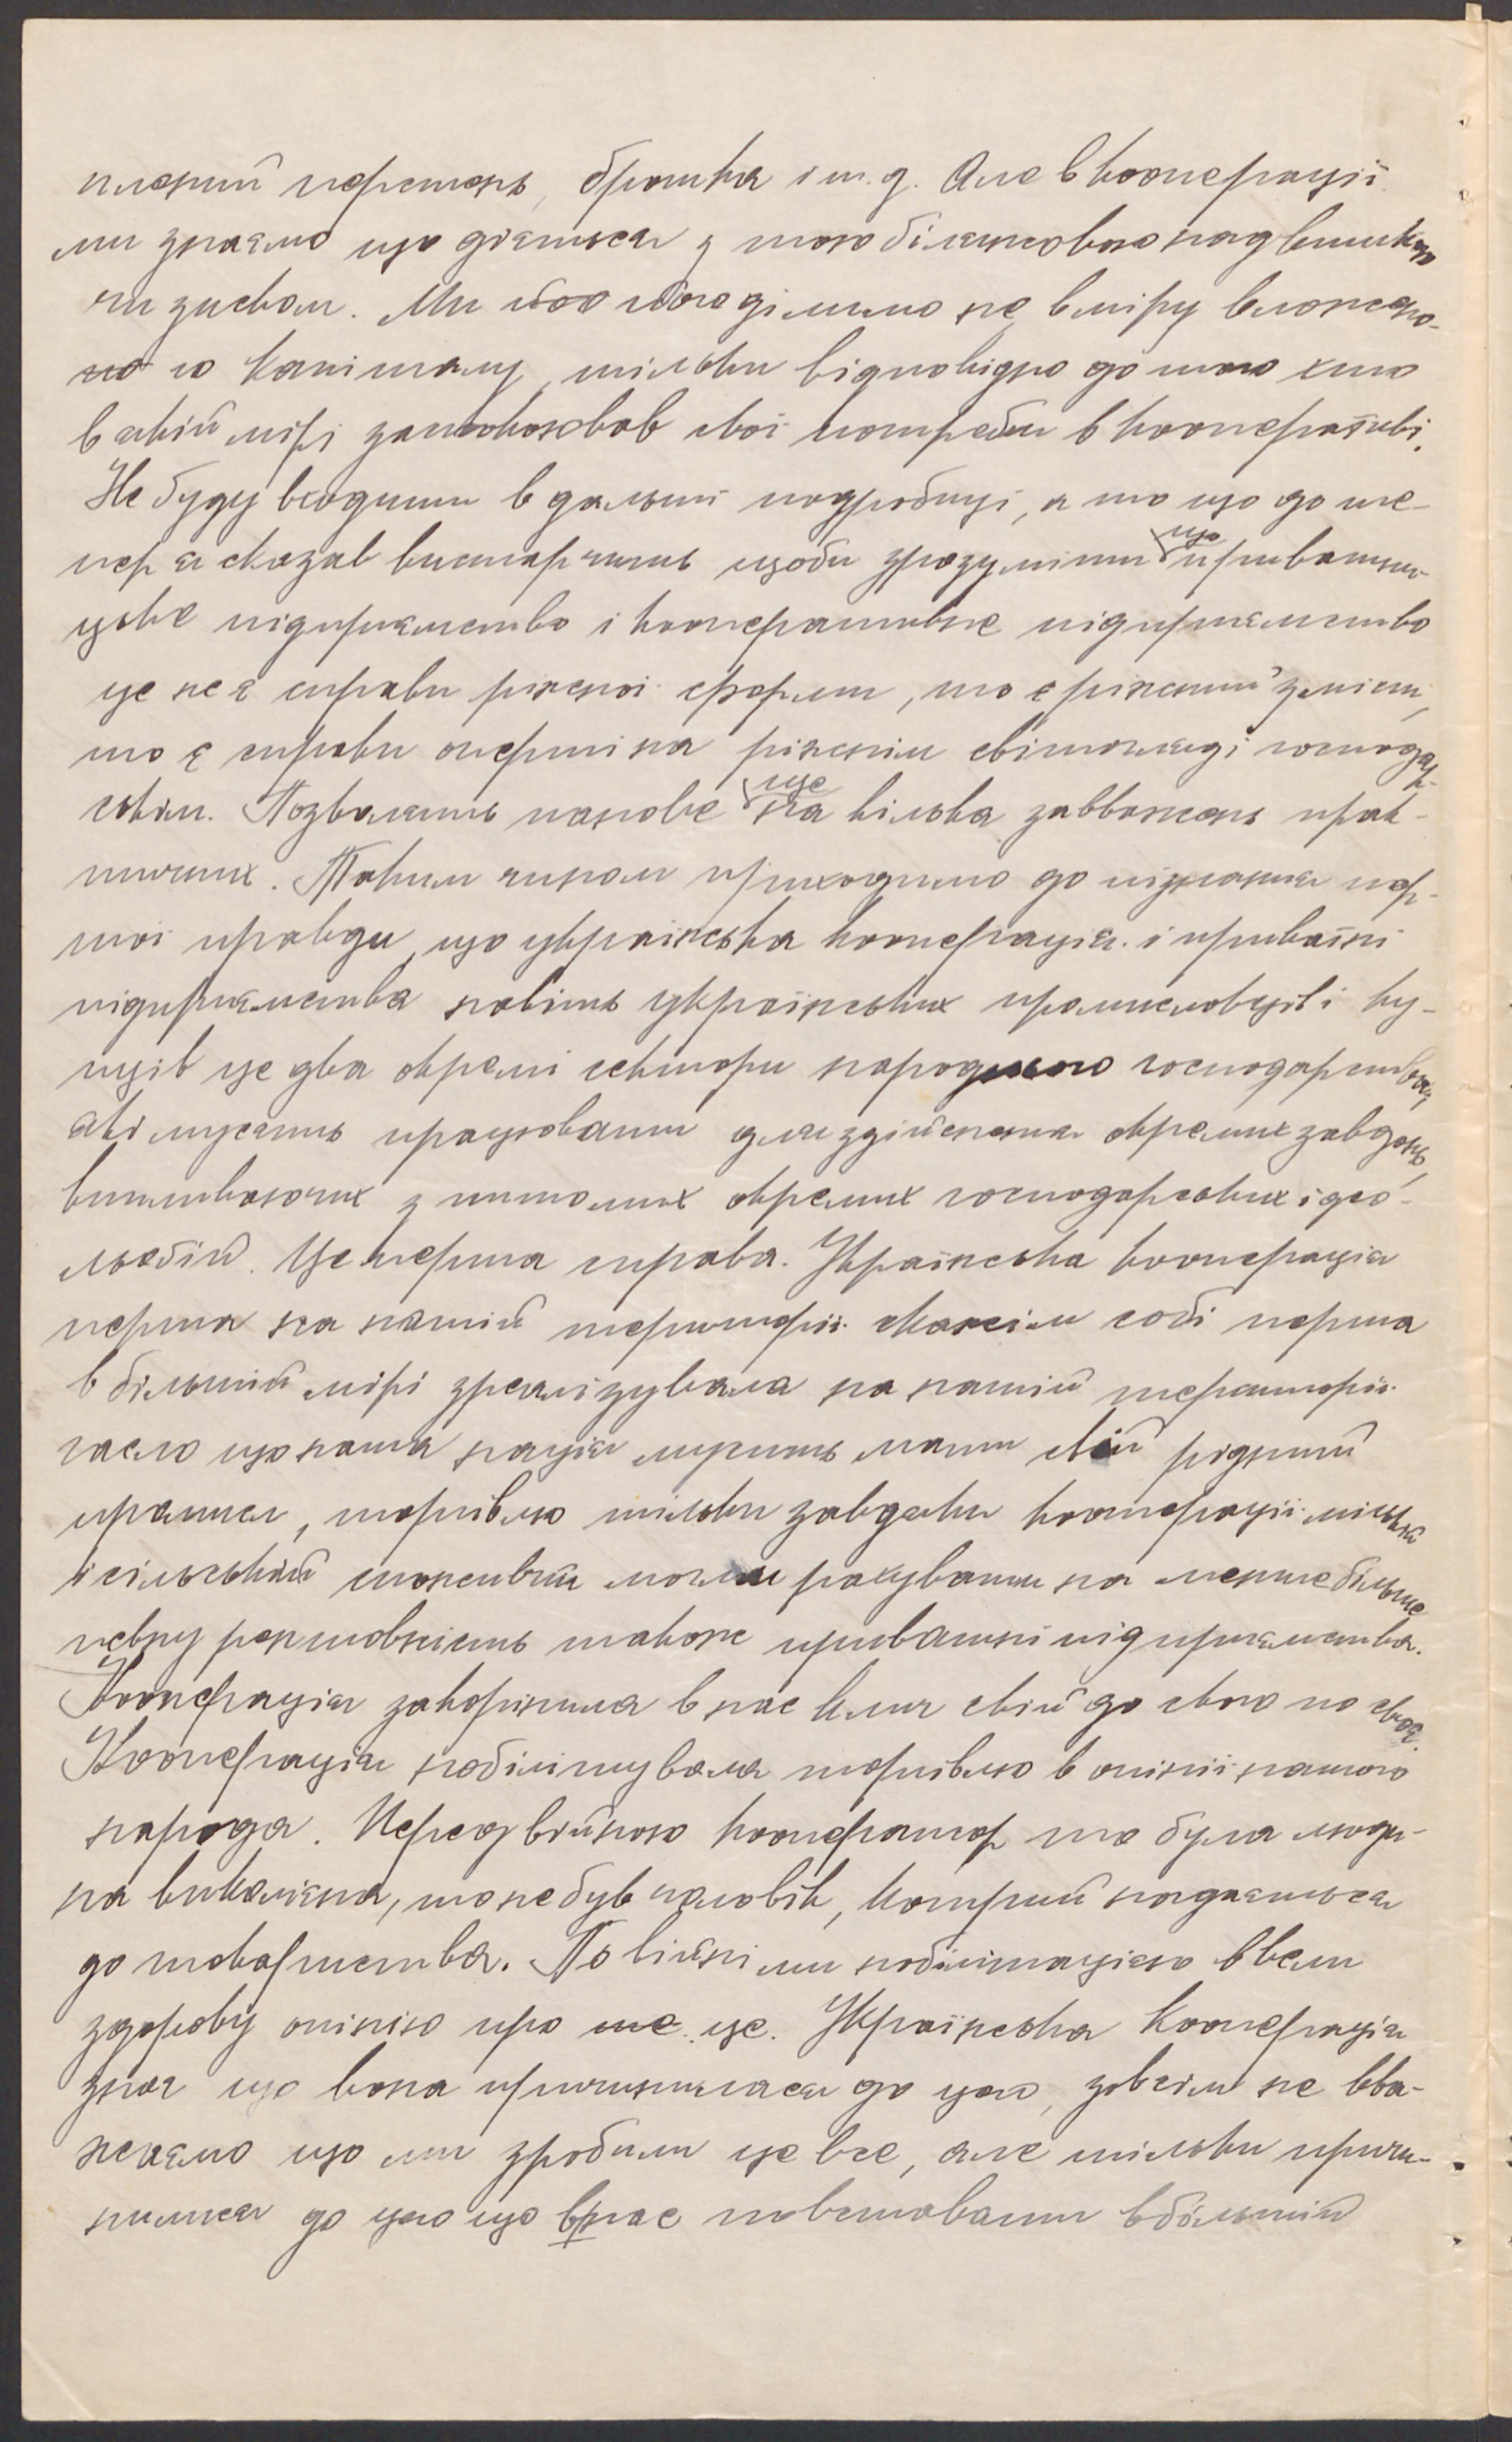 перстень, брошка і т.д. Але в кооперації
ми знаємо що діється з того білянсового надвишкою
чи зиском. Ми його ділимо не в міру вложено-
го капіталу, тільки відповідно до того хто
в якій мірі заспокоював свої потреби в кооперативі.
Не буду входити в дальші подробиці, а то що до те-
пер я сказав вистарчить щоби зрозуміти що приватни-
цьке підприємство і кооперативне підприємство
це не є справи ріжної форми, то є ріжний зміст,
то є справи оперті на ріжнім світогляді господар-
ськім. Позвольять панове ще на кілька завважень прак-
тичних. Таким чином приходимо до пізнання пер-
шої правди, що українська кооперація і приватні
підприємства навіть українських промисловців і куп-
ців це два окремі сектори народного господарства,
які мусять працювати для здійснення окремих завдань,
випливаючих з питомих окремих господарських ідео-
льогій. Це перша справа. Українська кооперація
перша на нашій території скажім собі перша
в більшій мірі зреалізувала на нашій території
гасло що наша нація мусить мати свій рідний
промисл, торгівлю тільки завдяки кооперації міській
і сільській споживчій могли рахувати на менше більше
певну рентовність також приватні підприємства.
Кооперація закорінила в нас клич свій до свого по своє.
Кооперація нобілітувала торгівлю в опінії нашого
народа. Перед війною кооператор то була люди-
на викаляна, то не був чоловік, котрий надається
до товариства. По війні ми нобілітацією ввели
здорову опінію про це. Українська Кооперація
знає що вона причинилася до цього, зовсім не вва-
жаємо що ми зробили це все, але тільки причи-
нилися до цього що в нас повставати в більшій